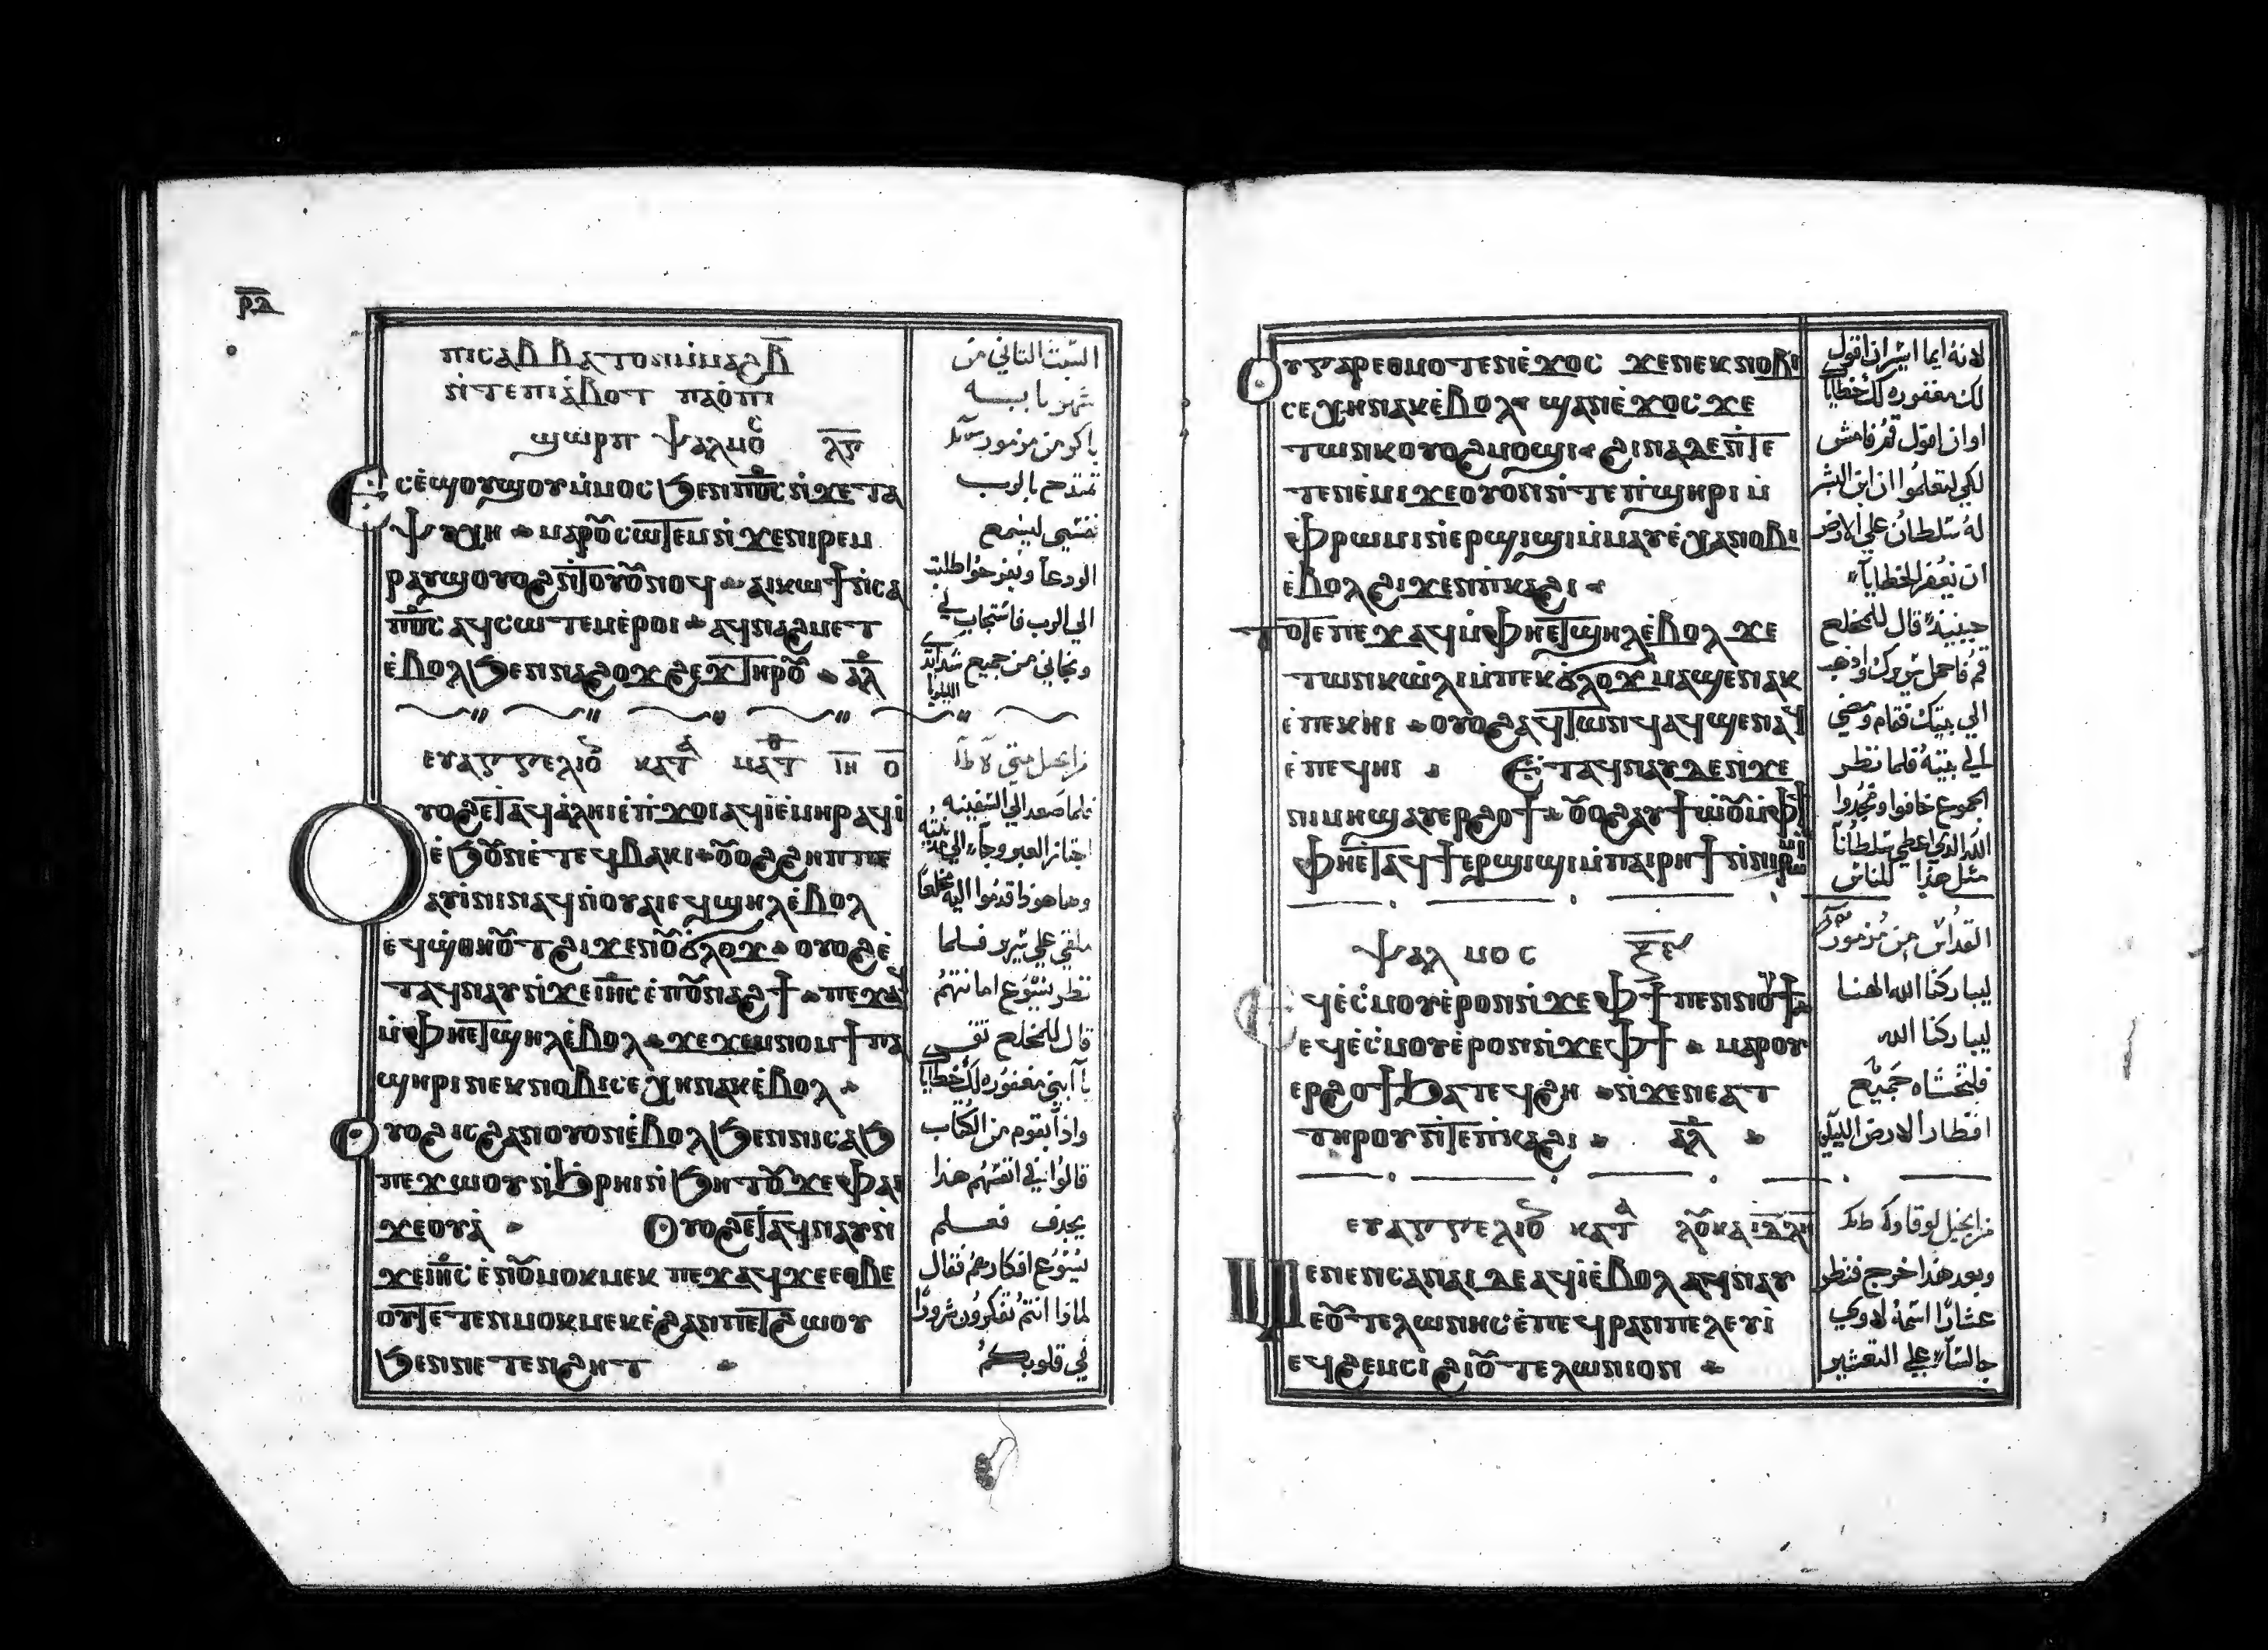 ⲣⲇ
ⲡⲓⲥⲁⲃⲃⲁⲧⲟⲛ ⲙ̀ⲙⲁϩ ⲃ̅
ⲛ̀ⲧⲉ ⲡⲓⲁ̀ⲃⲟⲧ ⲡⲁⲟ̀ⲡⲓ
ϣⲱⲣⲡ ⲯⲁⲗⲙⲟⲥ ⲗⲅ
Ⲉⲥⲉ̀ϣⲟⲩϣⲟⲩ ⲙ̀ⲙⲟⲥ ϧⲉⲛ ⲡⲟ̅ⲥ̅ ⲛ̀ϫⲉ ⲧⲁ
ⲯⲩⲭⲏ ⲙⲁⲣⲟⲩⲥⲱⲧⲉⲙ ⲛ̀ϫⲉ ⲛⲓⲣⲉⲙ
ⲣⲁⲩϣ ⲟⲩⲟϩ ⲛ̀ⲧⲟⲩⲟⲩⲛⲟϥ ⲁⲓⲕⲱϯ ⲛ̀ⲥⲁ
ⲡⲟ̅ⲥ̅ ⲁϥⲥⲱⲧⲉⲙ ⲉ̀ⲣⲟⲓ ⲁϥⲛⲁϩⲙⲉⲧ
ⲉ̀ⲃⲟⲗ ϧⲉⲛ ⲛⲁϩⲟϫϩⲉϫ ⲧⲏⲣⲟⲩ ⲁⲗ
ⲉⲩⲁⲅⲅⲉⲗⲓⲟⲛ ⲕⲁⲧⲁ ⲙⲁⲧⲑ ⲓⲏ ⲟ
Ⲟⲩⲟϩ ⲉ̀ⲧⲁϥⲁ̀ⲗⲏⲓ ⲉ̀ⲡ̀ϫⲟⲓ ⲁϥⲓ̀ ⲉ̀ⲙⲏⲣ ⲁϥⲓ̀
ⲉ̀ϧⲟⲩⲛ ⲉ̀ⲧⲉϥⲃⲁⲕⲓ ⲟⲩⲟϩ ϩⲏⲡⲡⲉ
ⲁⲩⲓ̀ⲛⲓ ⲛⲁϥ ⲛ̀ⲟⲩⲁⲓ ⲉϥϣⲏⲗ ⲉ̀ⲃⲟⲗ
ⲉϥϣ̀ⲑⲏⲟⲩⲧ ϩⲓϫⲉⲛ ⲟⲩϭⲗⲟϫ ⲟⲩⲟϩ ⲉ̀
ⲧⲁϥⲛⲁⲩ ⲛ̀ϫⲉ ⲓⲏ̅ⲥ̅ ⲉ̀ⲡⲟⲩⲛⲁϩϯ ⲡⲉϫⲁϥ
ⲙ̀ⲫⲏ ⲉⲧϣⲏⲗ ⲉ̀ⲃⲟⲗ ϫⲉ ϫⲉⲙⲛⲟⲙϯ ⲡⲁ
ϣⲏⲣⲓ ⲛⲉⲕⲛⲟⲃⲓ ⲥⲉⲭⲏ ⲛⲁⲕ ⲉ̀ⲃⲟⲗ
Ⲟⲩⲟϩ ⲓⲥ ϩⲁⲛⲟⲩⲟⲛ ⲉ̀ⲃⲟⲗ ϧⲉⲛ ⲛⲓⲥⲁϧ
ⲡⲉϫⲱⲟⲩ ⲛ̀ϧ̀ⲣⲏⲓ ⲛ̀ϧⲏⲧⲟⲩ ϫⲉ ⲫⲁⲓ
ϫⲉⲟⲩⲁ̀ Ⲟⲩⲟϩ ⲉⲧⲁϥⲛⲁⲩ ⲛ̀
ϫⲉ ⲓⲏ̅ⲥ̅ ⲉ̀ⲛⲟⲩⲙⲟⲕⲙⲉⲕ ⲡⲉϫⲁϥ ϫⲉ ⲉⲑⲃⲉ
ⲟⲩ ⲧⲉⲧⲉⲛⲙⲟⲕⲙⲉⲕ ⲉ̀ϩⲁⲛⲡⲉⲧϩⲱⲟⲩ
ϧⲉⲛ ⲛⲉⲧⲉⲛϩⲏⲧ
السبت الثاني من
شهر بابـــه
باكر من مزمور
تمتدح بالرب
نفسي ليسمع
الودعا ويفرحوا طلبت
الي الرب فاستجاب لي
ونجاني من جميع شدايدي
الليلويا
من انجيل متي
فلما صعد الي السفينه
اجتاز العبر وجآ الي مدينته
وهاهوذا قدموا اليه مخلعا
ملقي علي سرير فلما
نظر يسوع امانتهم
قال للمخلع تقـــ
يا ابني مغفوره لك خطاياك
واذا بقوم من الكتاب
قالوا في انفسهم هذا
يجدف فعـــلم
يسوع افكارهم فقال
لماذا انتم تفكرون شرورا
في قلوبكم
Ⲟⲩ ⲅⲁⲣ ⲉⲑⲙⲟⲧⲉⲛ ⲉ̀ϫⲟⲥ ϫⲉ ⲛⲉⲕⲛⲟⲃⲓ
ⲥⲉⲭⲏ ⲛⲁⲕ ⲉ̀ⲃⲟⲗ ϣⲁⲛ ⲉ̀ϫⲟⲥ ϫⲉ
ⲧⲱⲛⲕ ⲟⲩⲟϩ ⲙⲟϣⲓ ϩⲓⲛⲁ ⲇⲉ ⲛ̀ⲧⲉ
ⲧⲉⲛⲉ̀ⲙⲓ ϫⲉ ⲟⲩⲟⲛ ⲛ̀ⲧⲉ ⲡ̀ϣⲏⲣⲓ ⲙ̀
ⲫⲣⲱⲙⲓ ⲛ̀ⲉⲣϣⲓϣⲓ ⲙ̀ⲙⲁⲩ ⲉ̀ⲭⲁ ⲛⲟⲃⲓ
ⲉ̀ⲃⲟⲗ ϩⲓϫⲉⲛ ⲡ̀ⲕⲁϩⲓ
Ⲧⲟⲧⲉ ⲡⲉϫⲁϥ ⲙ̀ⲫⲏ ⲉⲧϣⲏⲗ ⲉ̀ⲃⲟⲗ ϫⲉ
ⲧⲱⲛⲕ ⲱ̀ⲗⲓ ⲙ̀ⲡⲉⲕϭⲗⲟϫ ⲙⲁϣⲉⲛⲁⲕ
ⲉ̀ⲡⲉⲕⲏⲓ ⲟⲩⲟϩ ⲁϥⲧⲱⲛϥ ⲁϥϣⲉⲛⲁϥ
ⲉ̀ⲡⲉϥⲏⲓ Ⲉⲧⲁⲩⲛⲁⲩ ⲇⲉ ⲛ̀ϫⲉ
ⲛⲓⲙⲏϣ ⲁⲩⲉⲣϩⲟϯ ⲟⲩⲟϩ ⲁⲩϯⲱⲟⲩ ⲙ̀ⲫϯ
ⲫⲏ ⲉⲧⲁϥϯ ⲉⲣϣⲓϣⲓ ⲙ̀ⲡⲁⲓⲣⲏϯ ⲛ̀ⲛⲓⲣⲱⲙⲓ
ⲯⲁⲗⲙⲟⲥ ⲝⲋ
Ⲉϥⲉ̀ⲥ̀ⲙⲟⲩ ⲉ̀ⲣⲟⲛ ⲛ̀ϫⲉ ⲫϯ ⲡⲉⲛⲛⲟⲩϯ
ⲉϥⲉ̀ⲥ̀ⲙⲟⲩ ⲉ̀ⲣⲟⲛ ⲛ̀ϫⲉ ⲫϯ ⲙⲁⲣⲟⲩ
ⲉⲣϩⲟϯ ϧⲁⲧⲉϥϩⲏ ⲛ̀ϫⲉ ⲛⲉⲁⲧ
ⲧⲏⲣⲟⲩ ⲛ̀ⲧⲉ ⲡ̀ⲕⲁϩⲓ ⲁⲗ
ⲉⲩⲁⲅⲅⲉⲗⲓⲟⲛ ⲕⲁⲧⲁ ⲗⲟⲩⲕⲁ
Ⲙⲉⲛⲉⲛⲥⲁ ⲛⲁⲓ ⲇⲉ ⲁϥⲓ̀ ⲉ̀ⲃⲟⲗ ⲁϥⲛⲁⲩ
ⲉⲟⲩⲧⲉⲗⲱⲛⲏⲥ ⲉ̀ⲡⲉϥⲣⲁⲛ ⲡⲉ ⲗⲉⲩⲓ̀
ⲉϥϩⲉⲙⲥⲓ ϩⲓ ⲟⲩⲧⲉⲗⲱⲛⲓⲟⲛ
لانه ايما ايسر ان اقول
لك مغفوره لك خطاياك
او ان اقول قم فامش
لكي لتعلموا ان ابن البشر
له سلطان علي الارض
ان يغفر الخطايا
حينيذ قال للمخلع
قم فاحمل سريرك واذهب
الي بيتك فقام ومضي
الي بيته فلما نظر
الجموع خافوا ومجدوا
الله الذي اعطي سلطانا
مثل هذا للناس
القداس من مزمور
ليباركنا الله الهنا
ليباركنا الله
فلتخشاه جميع
اقطار الارض الليلويا
من انجيل لوقا
وبعد هذا خرج فنظر
عشارا اسمه لاوي
جالسا علي التعشير